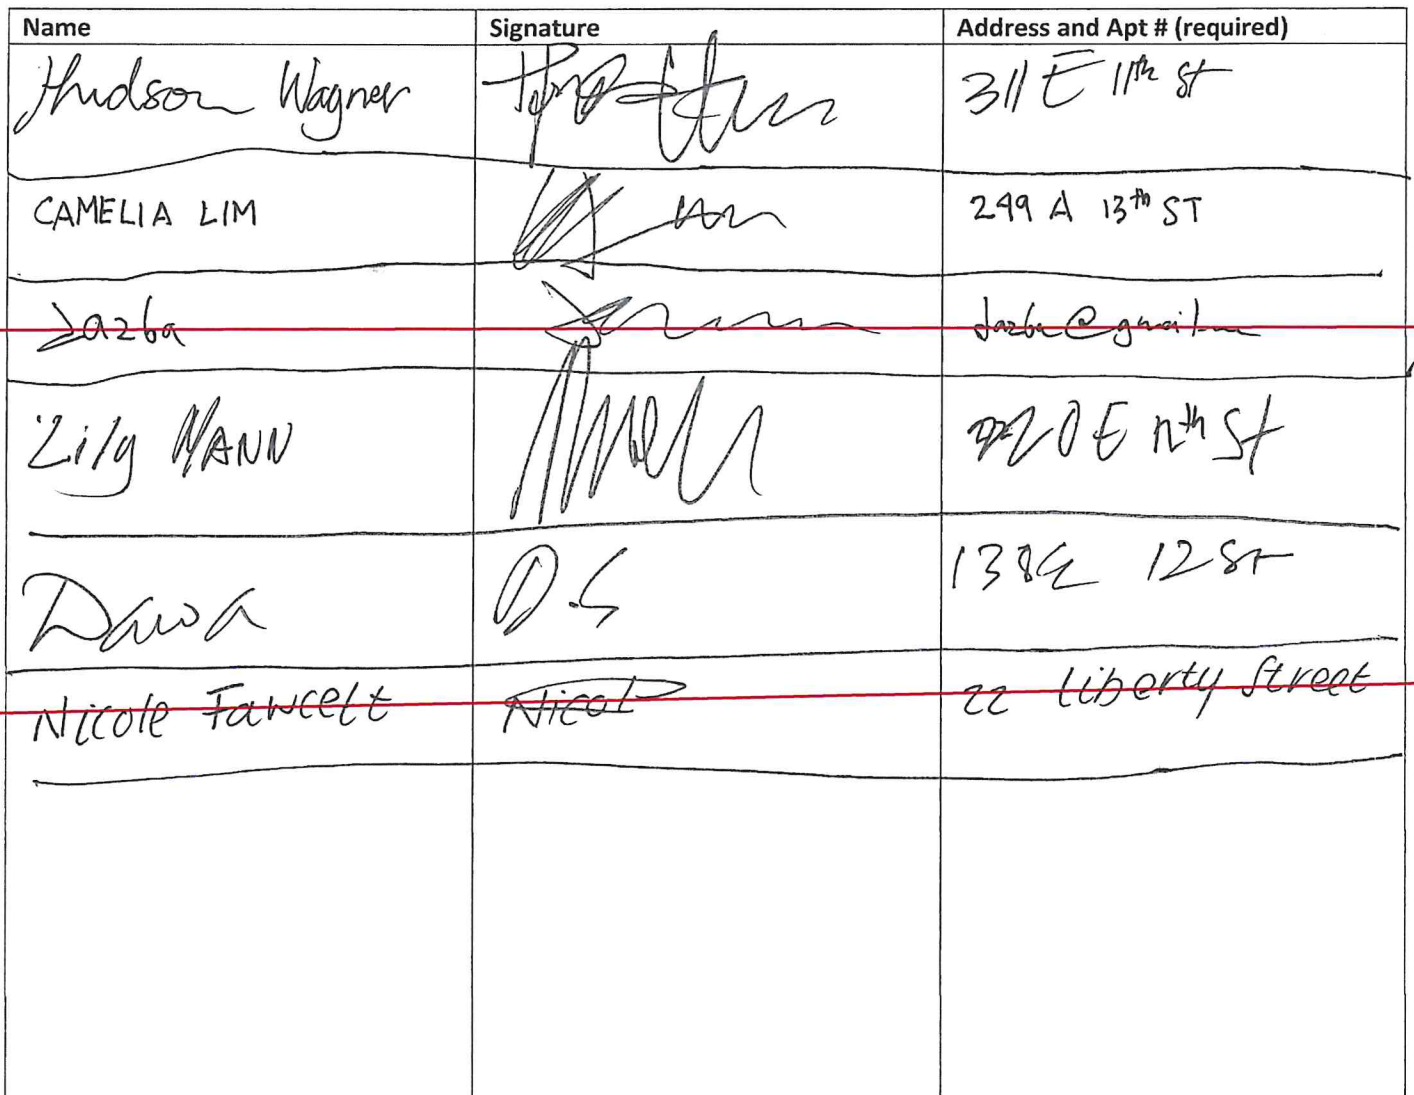 Name Signature Address and Apt # (required)
Hudson Wagner 311 E 11th St
CAMELIA LIM 249 A 13th ST
Jazba
Lily MANN E St
Dawa D.S 138 E 12 St
Nicole Fawcett Nicol 22 Liberty Street